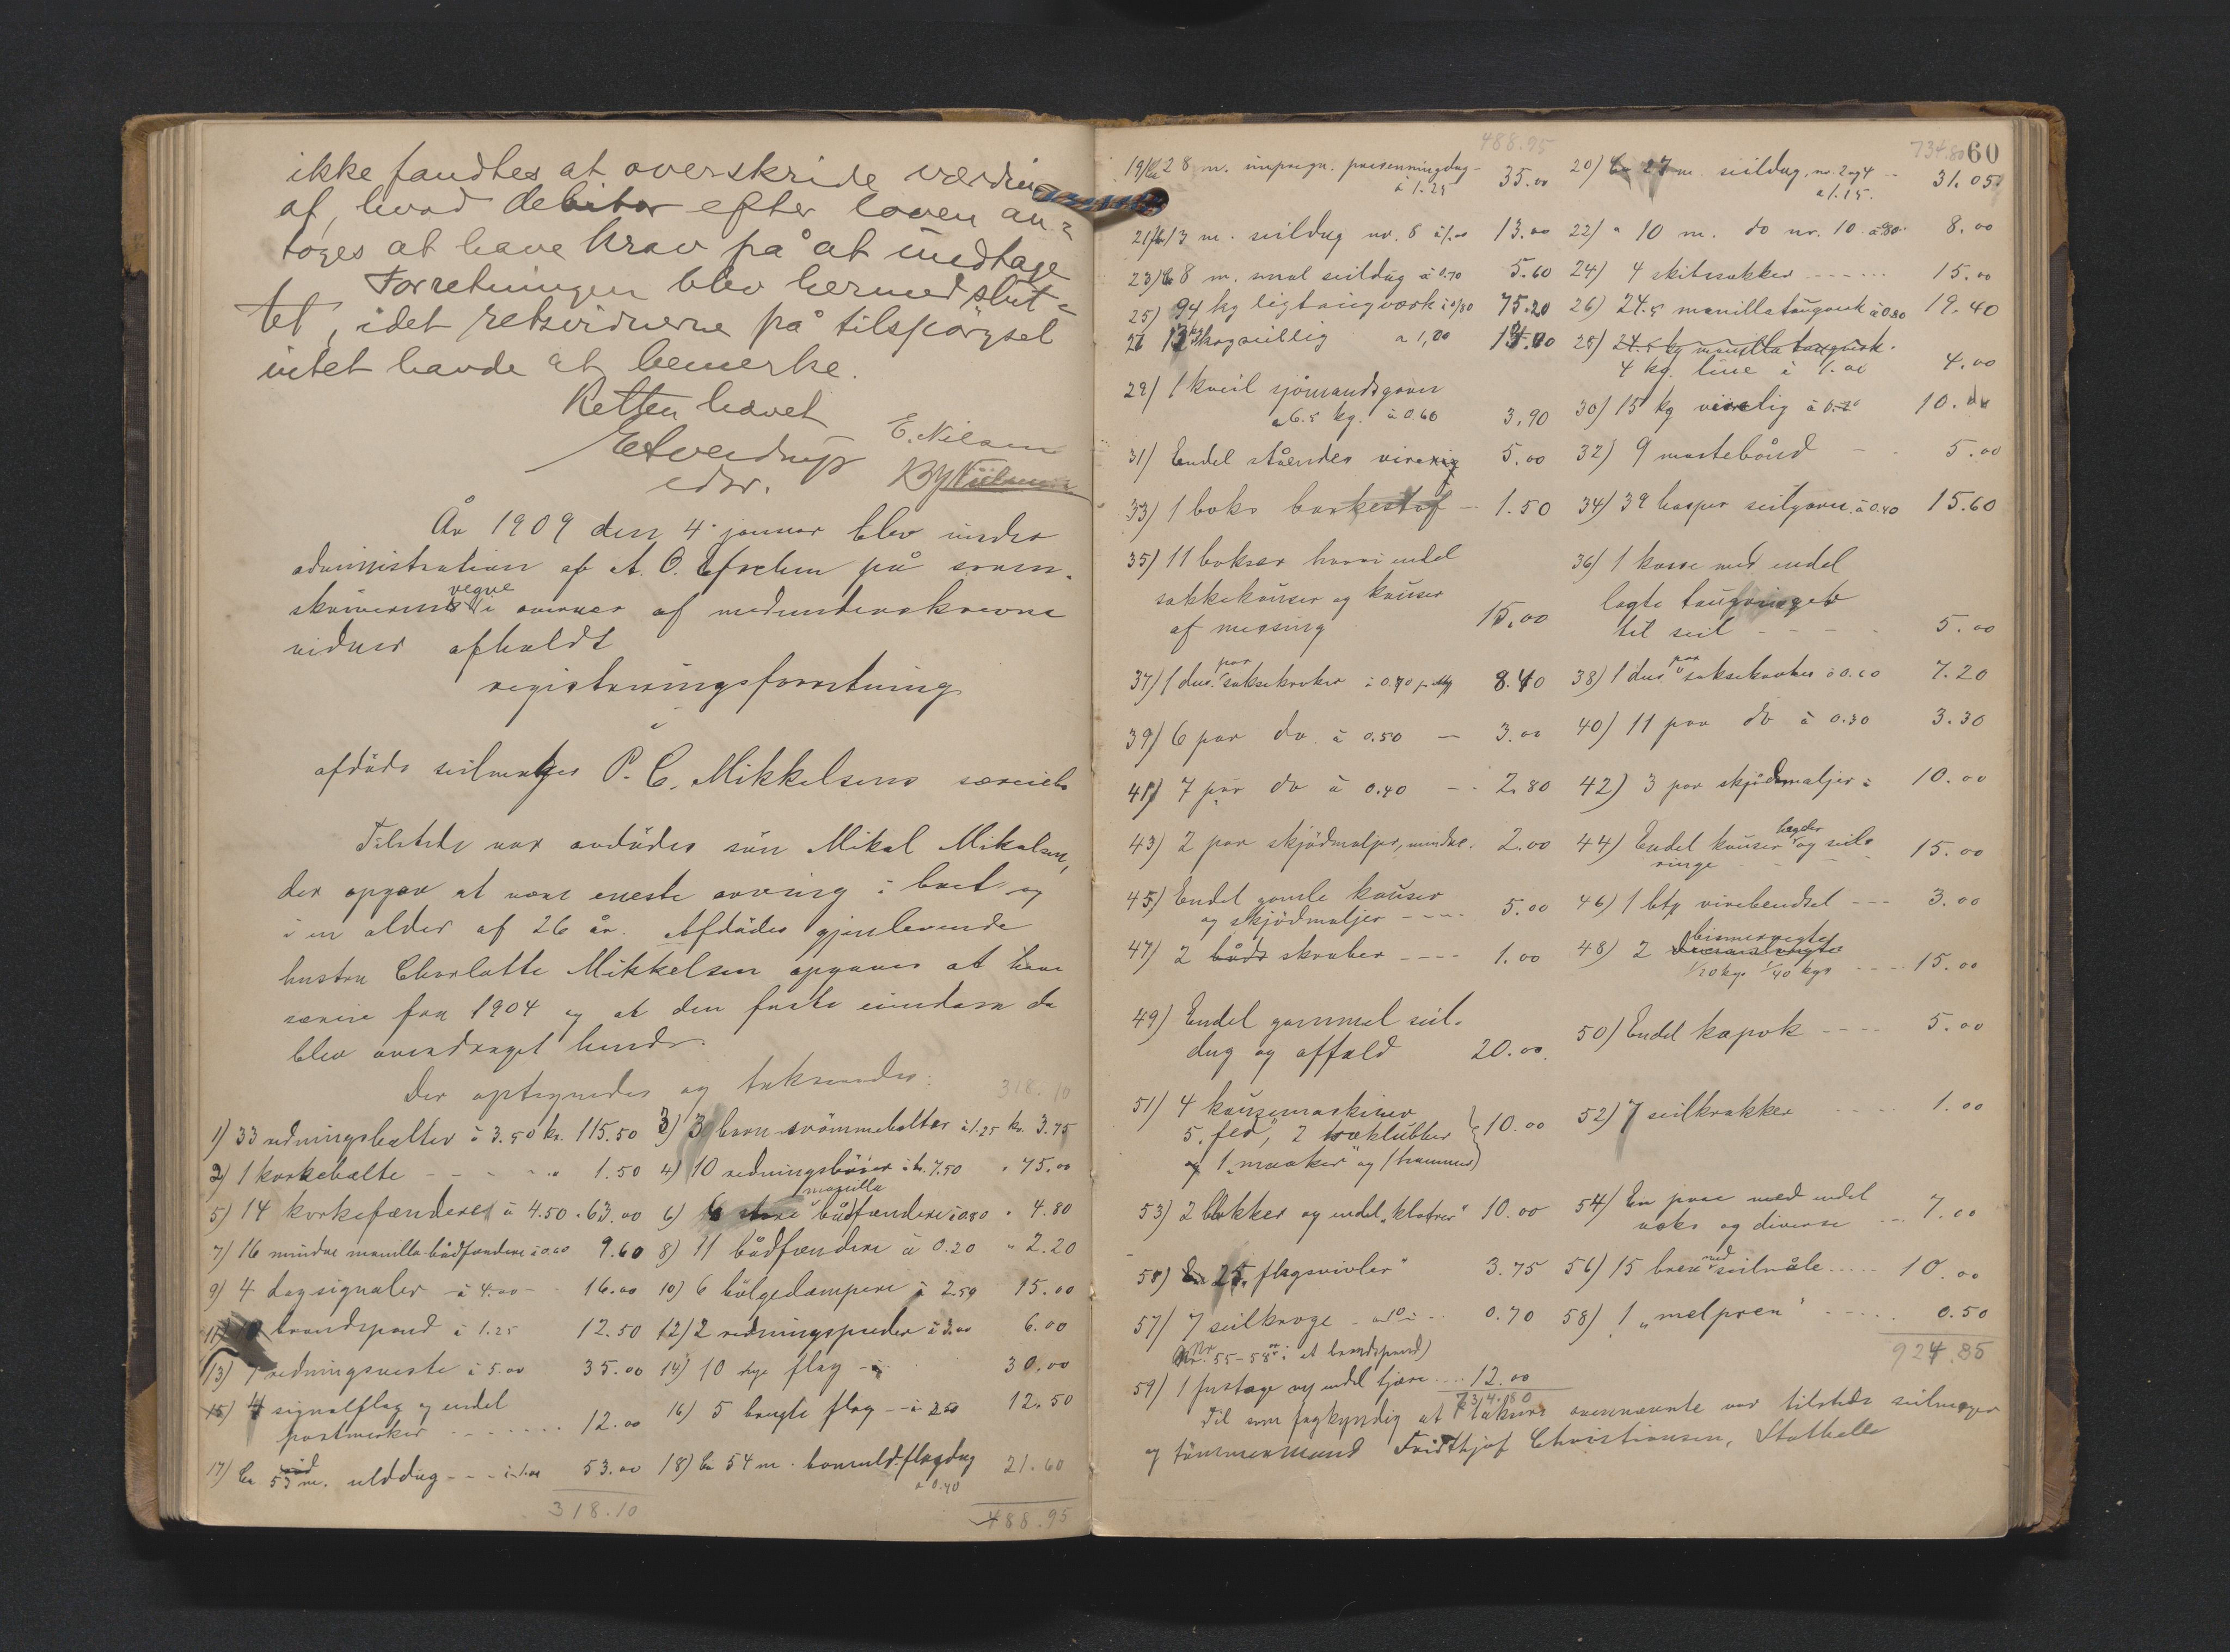 ikke fandtes at overskride værdien
af, hvad debitor efter loven an-
toges at have krav på at undtage
Forretningen blev hermed slut-
tet, idet retsvidnerne på tilspørgsel
intet havde at bemerke.
Retten hævet
E. Nilsen
edsv.
År 1909 den 4 januar blev under
administration af A. O. på soren-
skriverens vegne i overvær af medunderskrevne
vidner afholdt
registreringsforretning
i
afdøde seilmager P. C. Mikkelsens særeiebo
Tilstede var avdødes sön Mikal Mikalsen,
der opgav at være eneste arving i boet og
i en alder af 26 år. Afdödes gjenlevende
hustru Charlotte Mikkelsen opgaves at have
særeie fra 1904 og at den faste eiendom da
blev overdraget hende.
Der optegnedes og takseredes:
318.10
1) 33 redningsbelter à 3.50 kr. 115.50 3) 3 barn svömmebelter à 1.25 kr. 3.75
2) 1 korkebælte - - - - " 1.50 4) 10 redningsböier à kr. 7.50 " 75.00
5) 14 korkefændere à 4.50 " 63.00 6) 6 store manilla bådfændere à 0.80 " 4.80
7) 16 mindre manilla bådfændere à 0.60 9.60 8) 11 bådfændere à 0.20 " 2.20
9) 4 dagsignaler - à 4.00 - 16.00 10) 6 bölgedæmpere à 2.50 15.00
11) brandspand à 1.25 12.50 12) 2 redningspuder à 3.00 6.00
13) 7 redningsveste à 5.00 35.00 14) 10 nye flag - 30.00
15) 4 signalflag og endel
postmerker - - - - - 12.00 16) 5 brugte flag - à 2.50 12.50
17) Ca 53 m. ulddug - - - à 1.00 53.00 18) Ca 54 m. bomuldsflagdug
à 0.40 21.60
318.10 488.95
488.95 734.80 60
19) Ca 28 m. impregn. presenningdug -
à 1.25 35.00 20) Ca 27 m. seildug, nr. 2 og 4 - -
à 1.15. 31.05
21) Ca 13 m. seildug nr. 8 à 1.00 13.00 22) " 10 m. do nr. 10 à 80 8.00
23) Ca 8 m. smal seildug à 0.70 5.60 24) 4 skibssækker - - - - 15.00
25) 94 kg ligtaugværk à 0/80 75.20 26) 24.5 manillataugverk à 0.80 19.40
28) 24.5 kg manilla taugverk.
4 kg. line à 1.00 4.00
29) 1 kveil sjömandsgarn
6.5 kg. à 0.60 3.90 30) 15 kg virelig à 10.00
31) Endel stående virerig 5.00 32) 9 mastebånd - - 5.00
33) 1 boks barkestof - 1.50 34) 39 hasper seilgarn à 0.40 15.60
35) 11 bokser hvori endel
sækkekauser og kauser
af messing 15.00
36) 1 kasse med endel
lagte taugringer
til seil - - - - 5.00
37) 1 dus. par saksekroker à 0.70 8.40 38) 1 dus par saksekroker à 0.60 7.20
39) 6 par do à 0.50 - 3.00 40) 11 par do à 0.30 3.30
41) 7 par do à 0.40 - - 2.80 42) 3 par skjödmaljer à 10.00
43) 2 par skjödmaljer, mindre. 2.00 44) Endel kauser løgder og seil-
ringe - - - 15.00
45) Endel gamle kauser
og skjödmaljer - - - - 5.00 46) 1 btg virebendsel - - - 3.00
47) 2 skruber - - - - 1.00 48) 2 bismervegte
1/20 kgs 1/40 kgs - - - - 15.00
49) Endel gammel seil-
dug og affald 20.00 50) Endel kapok - - - - 5.00
51) 4 kausemaskiner
5 „fed“, 2 træklubber 10.00
og 1 „mærker“ og 1 hammer
52) 7 seilkrakker - - - - 1.00
53) 2 blokker og endel „klotrer“ 10.00 54) En pose med endel
voks og diverse - - 7.00
55) 25 „flagsvivler“ 3.75 56) 15 brev med seilnåle - - - 10.00
57) 7 seilkroge - à 10 - - 0.70 58) 1 „melpren“ - - - - 0.50
(Nr. 55-58 i et brandspand) 924.85
59) 1 fustage og endel tjære - - - 12.00
734.80
Til som fagkyndig at taksere ovennævnte var tilstede seilmager
og tömmermand Fridthjof Christiansen, Stathelle